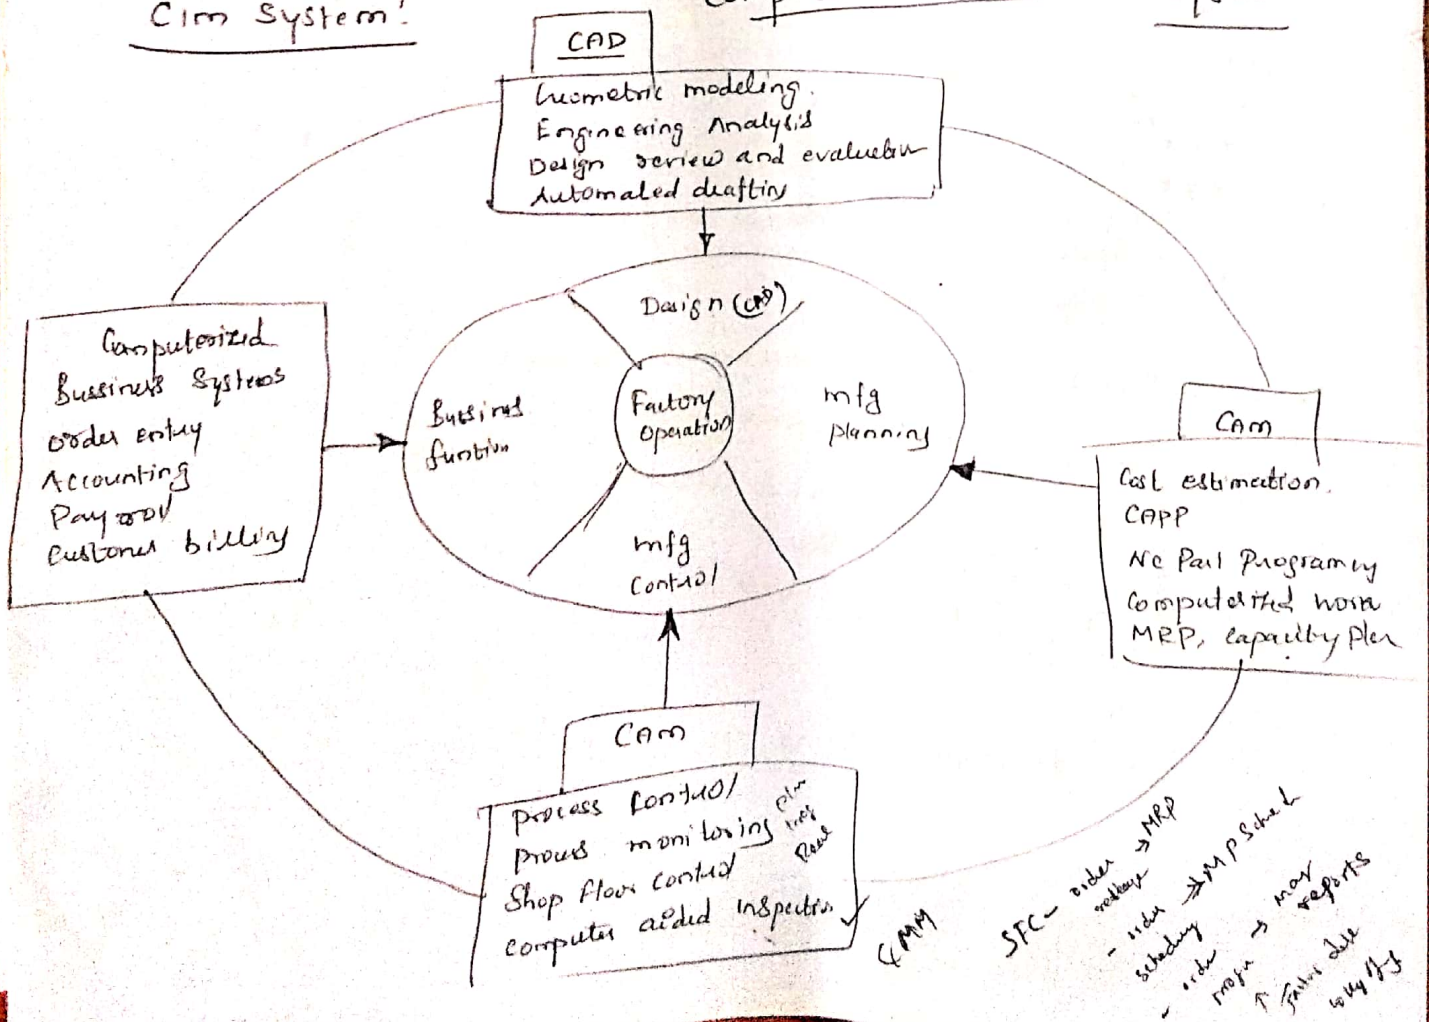 Cim System!
CAD
Geometric modeling.
Engineering Analysis
Design review and evaluation
Automated drafting
Computerized
Bussiness Systems
order entry
Accounting
Payroll
Customer billing
Design (CAD)
Bussines
funtion
Factory
Operation
mfg
planning
mfg
Control
CAM
Cost estimation.
CAPP
NC Part Programing
Computerized work
MRP, Capacity Plan
CAM
process Control
process monitoring
Shop floor control
computer aided inspection
CMM
SFC - order → MRP
release
- order → MP Sched
scheduling
- order → man
reports
↑ Factory data